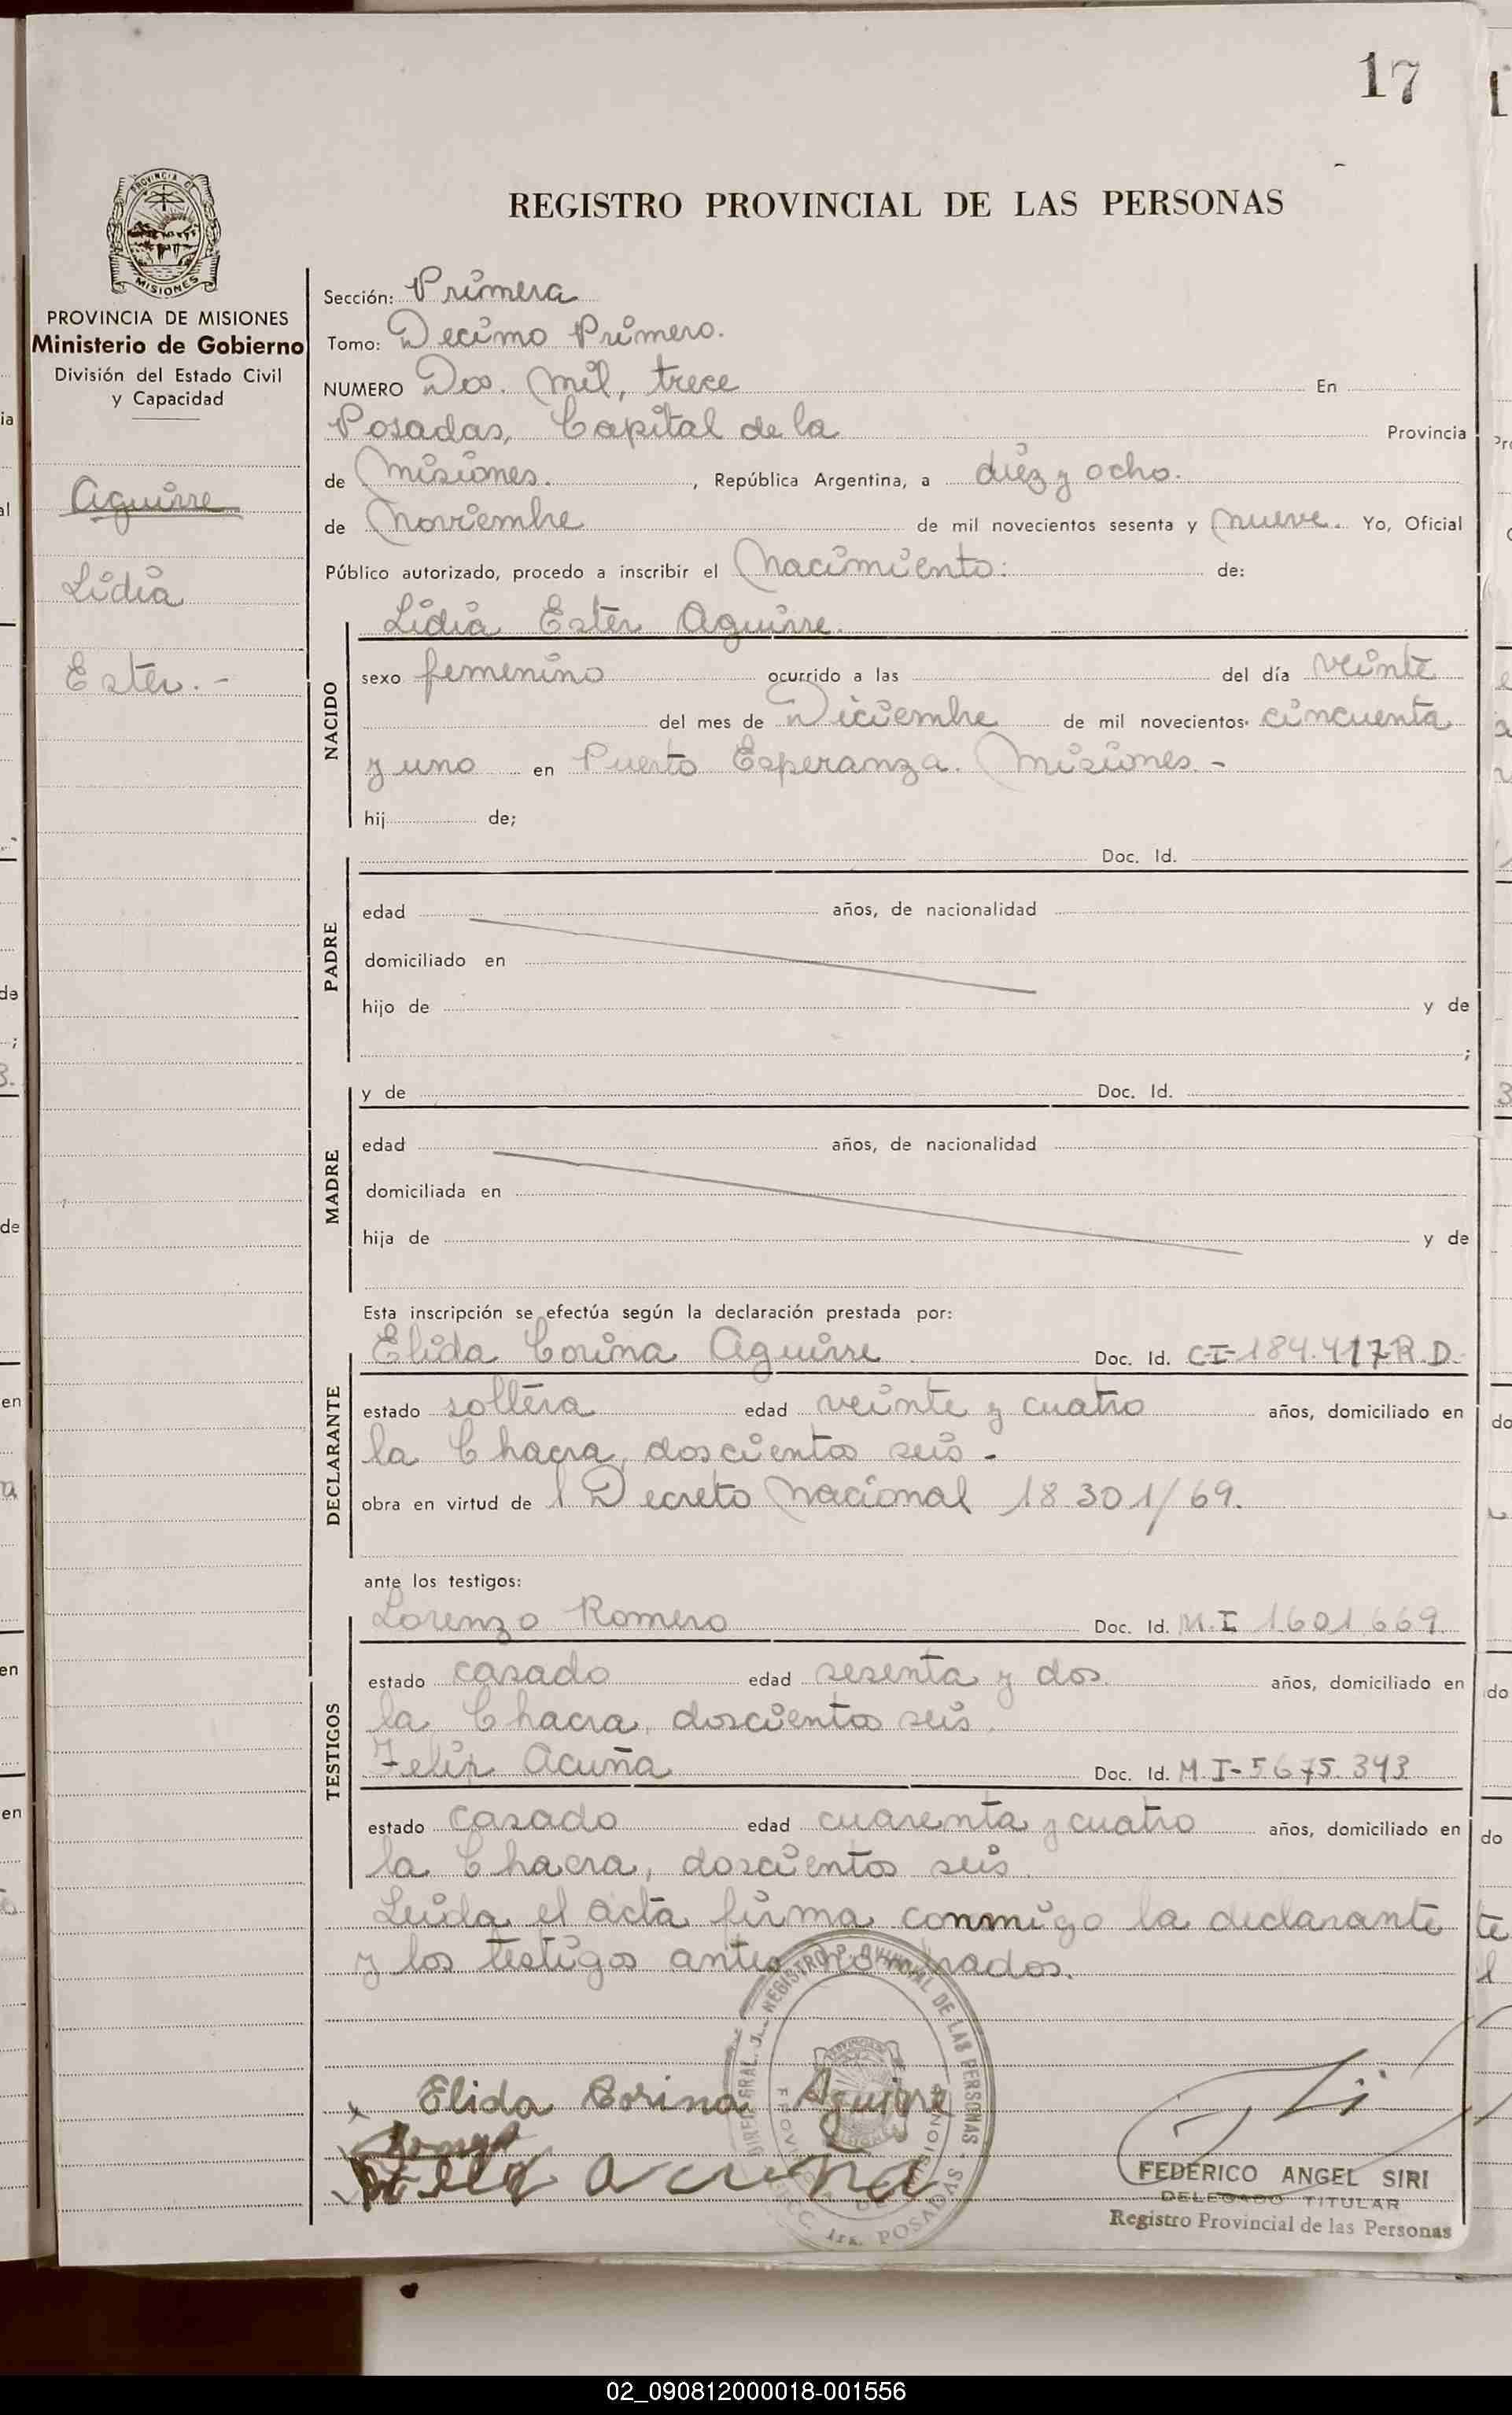 17
REGISTRO PROVINCIAL DE LAS PERSONAS
PROVINCIA DE MISIONES
Ministerio de Gobierno
División del Estado Civil
y Capacidad
Aguirre
Lidia
Ester.-
Sección: Primera
Tomo: Decimo Primero.
NUMERO Dos. Mil, trece En
Posadas, Capital de la Provincia
de Misiones. , República Argentina, a diez y ocho.
de Noviembre de mil novecientos sesenta y nueve. Yo, Oficial
Público autorizado, procedo a inscribir el Nacimiento: de:
NACIDO
Lidia Ester Aguirre.
sexo femenino ocurrido a las del día veinte
del mes de Diciembre de mil novecientos cincuenta
y uno en Puerto Esperanza. Misiones.-
hij de;
PADRE
Doc. Id.
edad años, de nacionalidad
domiciliado en
hijo de y de
;
MADRE
y de Doc. Id.
edad años, de nacionalidad
domiciliada en
hija de y de
Esta inscripción se efectúa según la declaración prestada por:
DECLARANTE
Elida Corina Aguirre Doc. Id. C-I-184.417-R.D.
estado soltera edad veinte y cuatro años, domiciliado en
la Chacra, doscientos seis.-
obra en virtud de l Decreto Nacional 18301/69.
ante los testigos:
TESTIGOS
Lorenzo Romero Doc. Id. M.I 1601669.
estado casado edad sesenta y dos. años, domiciliado en
la Chacra, doscientos seis.
Felix Acuña Doc. Id. M.I-5675.343
estado casado edad cuarenta y cuatro años, domiciliado en
la Chacra, doscientos seis.
Leida el acta firma conmigo la declarante
y los testigos antes nombrados.
Elida Corina Aguirre
acuña
REGISTRO PROVINCIAL DE LAS PERSONAS
POSADAS
FEDERICO ANGEL SIRI
DELEGADO TITULAR
Registro Provincial de las Personas
02_090812000018-001556